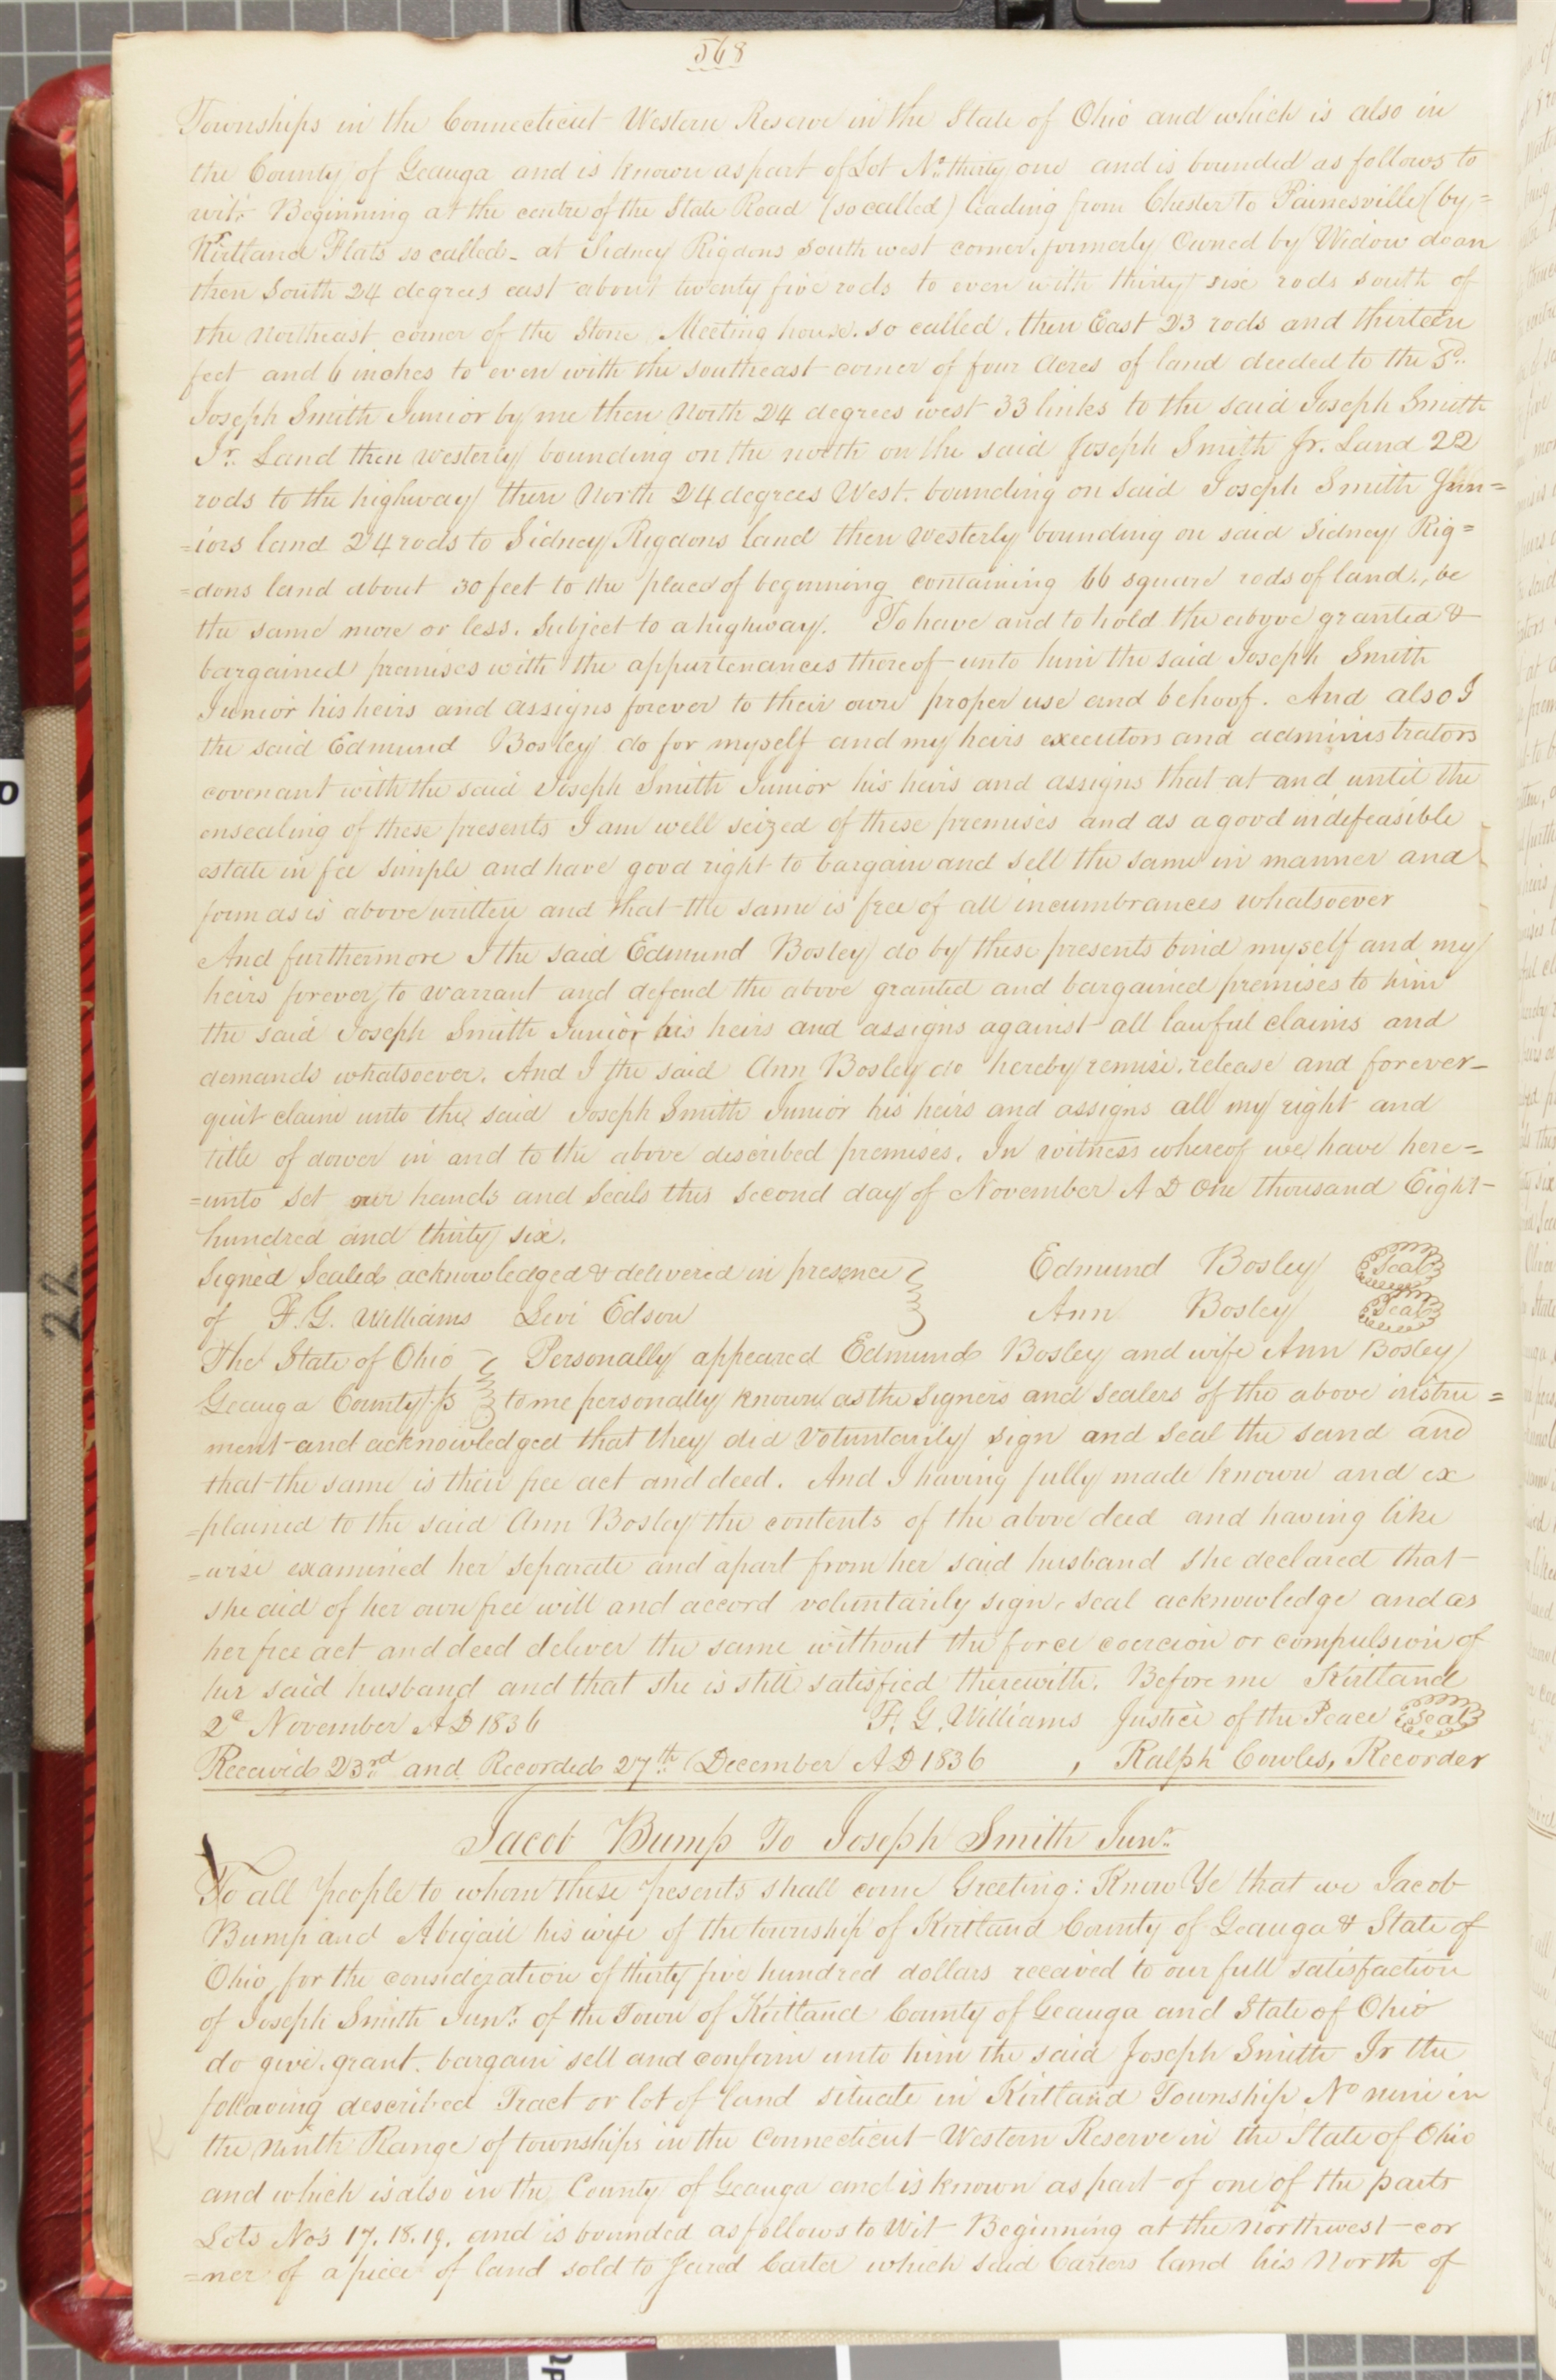 568
Townships in the Connecticut Western Reserve in the State of Ohio and which is also in
the County of Geauga and is known as part of Lot No. thirty one and is bounded as follows to
wit:- Beginning at the centre of the State Road (so called) leading from Chester to Painesville (by=
Kirtland Flats so called- at Sidney Rigdons south west corner, formerly Owned by Widow doan
then South 24 degrees east about twenty five rods to even with thirty six rods south of
the Northeast corner of the Stone Meeting house. so called. then East 23 rods and thirteen
feet and 6 inches to even with the southeast corner of four Acres of land deeded to the Sd..
Joseph Smith Junior by me then North 24 degrees west 33 links to the said Joseph Smith
Jr.. Land then westerly bounding on the north on the said Joseph Smith Jr. Land 22
rods to the highway then North 24 degrees West. bounding on said Joseph Smith Jun=
=iors land 24 rods to Sidney Rigdons land then westerly bounding on said Sidney Rig=
=dons land about 30 feet to the place of beginning containing 66 square rods of land., be
the same more or less. Subject to a highway. To have and to hold the above granted &
bargained premises with the appurtenances thereof unto him the said Joseph Smith
Junior his heirs and assigns forever to their own proper use and behoof. And also I
the said Edmund Bosley do for myself and my heirs executors and administrators
covenant with the said Joseph Smith Junior his heirs and assigns that at and until the
ensealing of these presents I am well seized of these premises and as a good indefeasible
estate in fee simple and have good right to bargain and sell the same in manner and
form as is above written and that the same is free of all incumbrances whatsoever
And furthermore I the said Edmund Bosley do by these presents bind myself and my
heirs forever, to warrant and defend the above granted and bargained premises to him
the said Joseph Smith Junior his heirs and assigns against all lawful claims and
demands whatsoever. And I the said Ann Bosley do hereby remise, release and forever-
quit claim unto the said Joseph Smith Junior his heirs and assigns all my right and
title of dower in and to the above described premises. In witness whereof we have here=
=unto set our hands and seals this second day of November A D One thousand Eight-
hundred and thirty six.
Signed Sealed acknowledged & delivered in presence Edmund Bosley Seal
of F. G. Williams Levi Edson Ann Bosley Seal
The State of Ohio Personally appeared Edmund Bosley and wife Ann Bosley
Geauga County ss to me personally known as the Signers and Sealers of the above instru=
ment and acknowledged that they did Voluntarily sign and seal the sand and
that the same is their free act and deed. And I having fully made known and ex
=plained to the said Ann Bosley the contents of the above deed and having like
=wise examined her separate and apart from her said husband she declared that
she did of her own free will and accord voluntarily sign, seal acknowledge and as
her free act and deed deliver the same without the force coercion or compulsion of
her said husband and that she is still satisfied therewith. Before me Kirtland
2d November A D 1836 F. G. Williams Justice of the Peace Seal
Received 23rd and Recorded 27th December A D 1836 , Ralph Cowles, Recorder
Jacob Bump To Joseph Smith Junr.
To all people to whom these presents shall come Greeting: Know Ye that we Jacob
Bump and Abigail his wife of the township of Kirtland County of Geauga & State of
Ohio, for the consideration of thirty five hundred dollars received to our full satisfaction
of Joseph Smith Junr. of the Town of Kirtland County of Geauga and State of Ohio
do give, grant. bargain sell and confirm unto him the said Joseph Smith Jr the
following described Tract or lot of land situate in Kirtland Township No nine in
the Ninth Range of townships in the Connecticut Western Reserve in the State of Ohio
and which is also in the County of Geauga and is known as part of one of the parts
Lots Nos 17. 18. 19. and is bounded as follows to Wit- Beginning at the northwest-cor
=ner of a piece of land sold to Jared Carter which said Carters land his North of
22